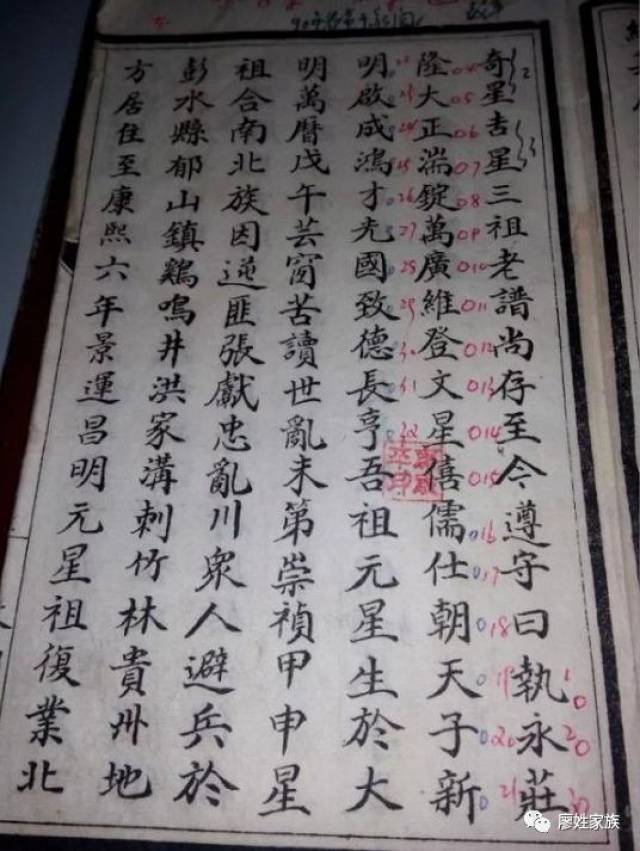 奇星吉星三祖老譜尚存至今遵守曰執永莊
隆大正湍錠萬廣維登文星僖儒仕朝天子新
明啟成鴻才光國致德長亨吾祖元星生於大
明萬曆戊午芸窗苦讀世亂未第崇禎甲申星
祖合南北族因逆匪張獻忠亂川眾人避兵於
彭水縣郁山鎮鷄鳴井洪家溝刺竹林貴州地
方居住至康熙六年景運昌明元星祖復業北
廖姓家族